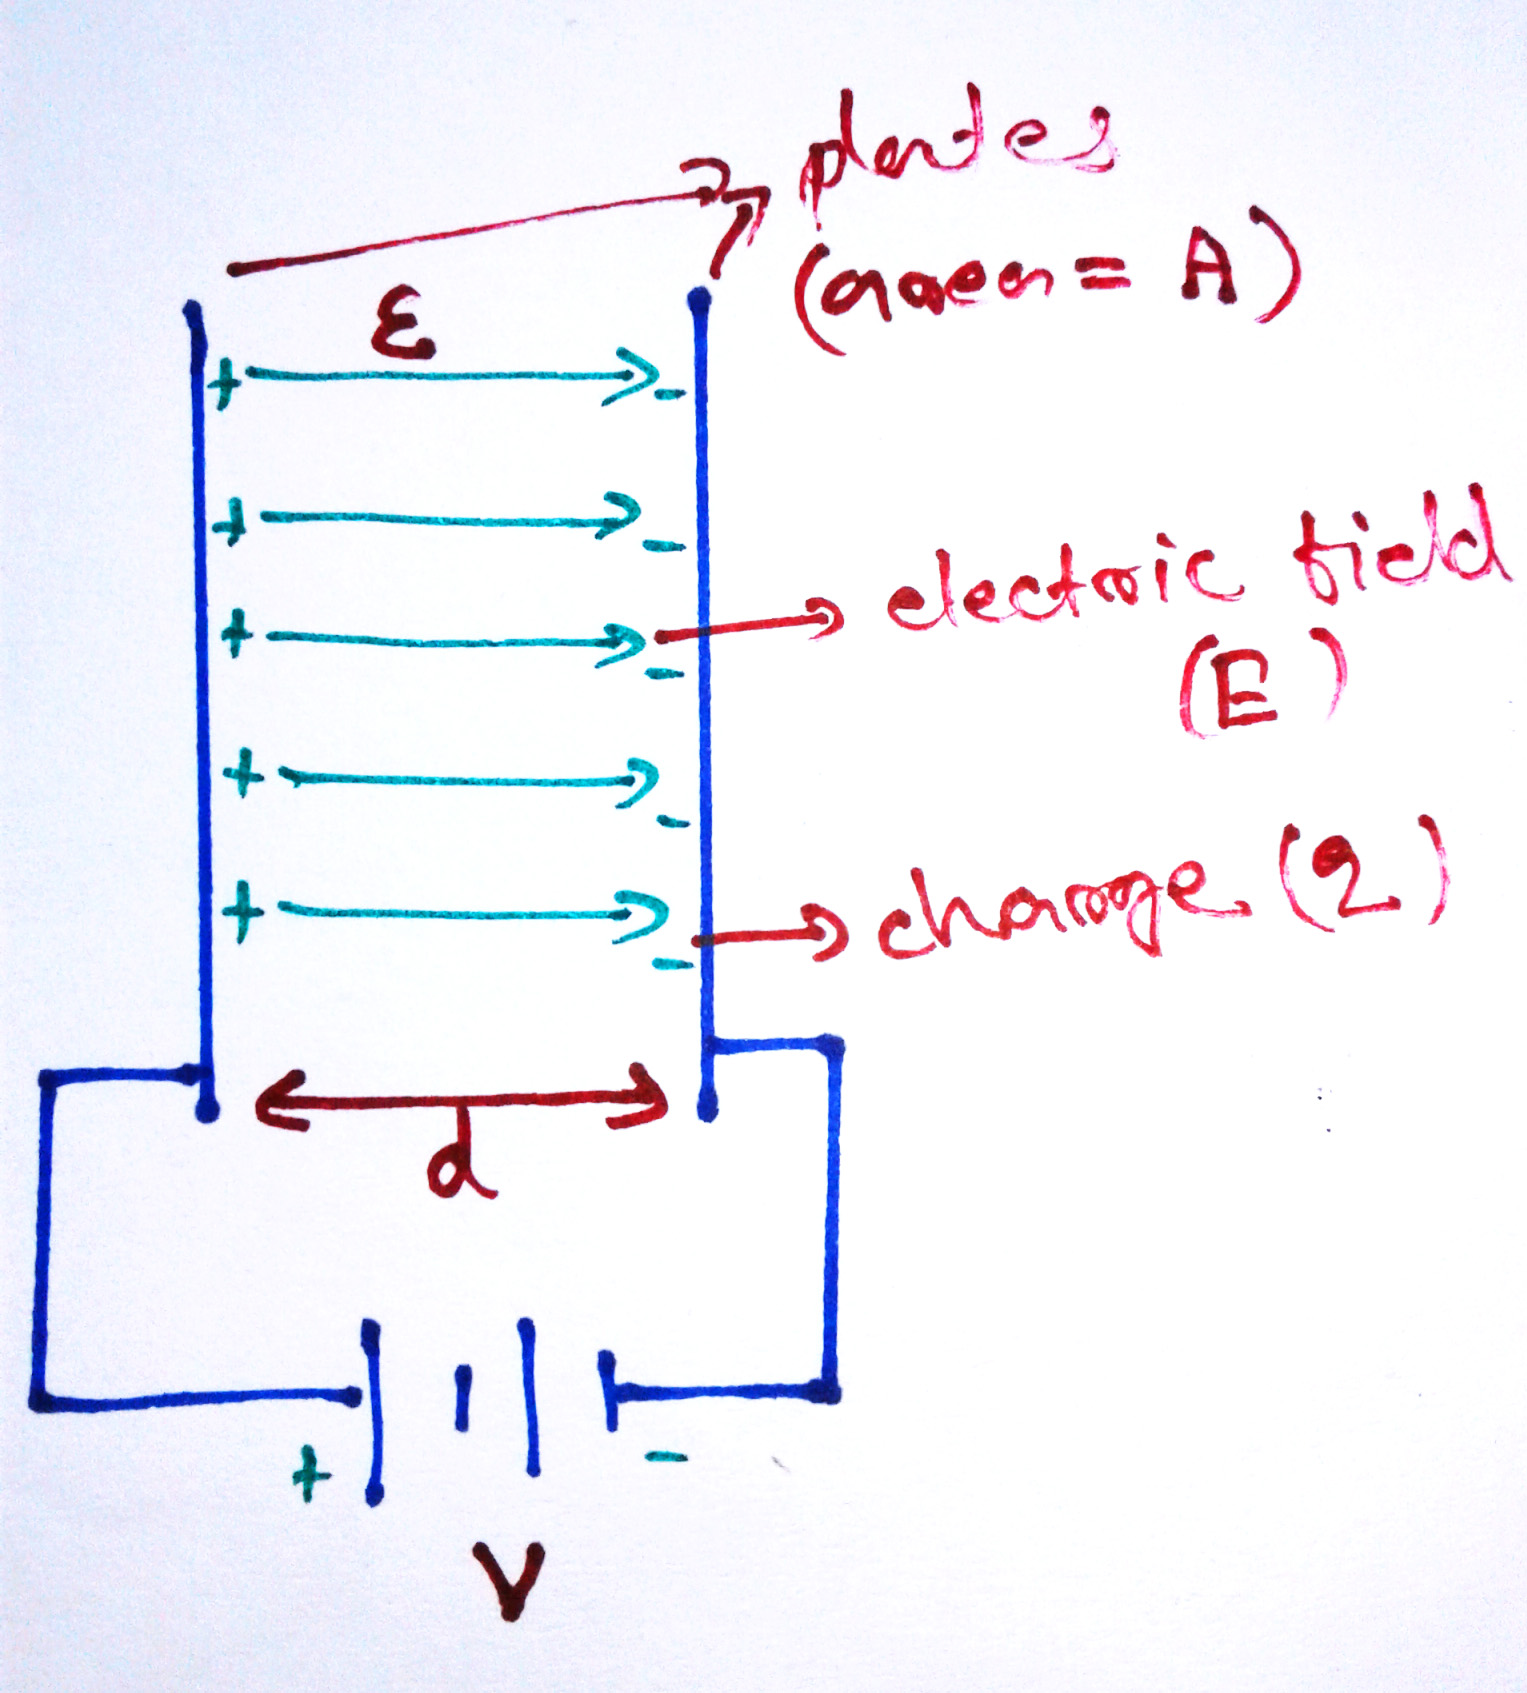 plates
(area = A)
ε
+ -
+ -
electric field
+ -
(E)
+ -
charge (q)
+ -
d
+ -
V